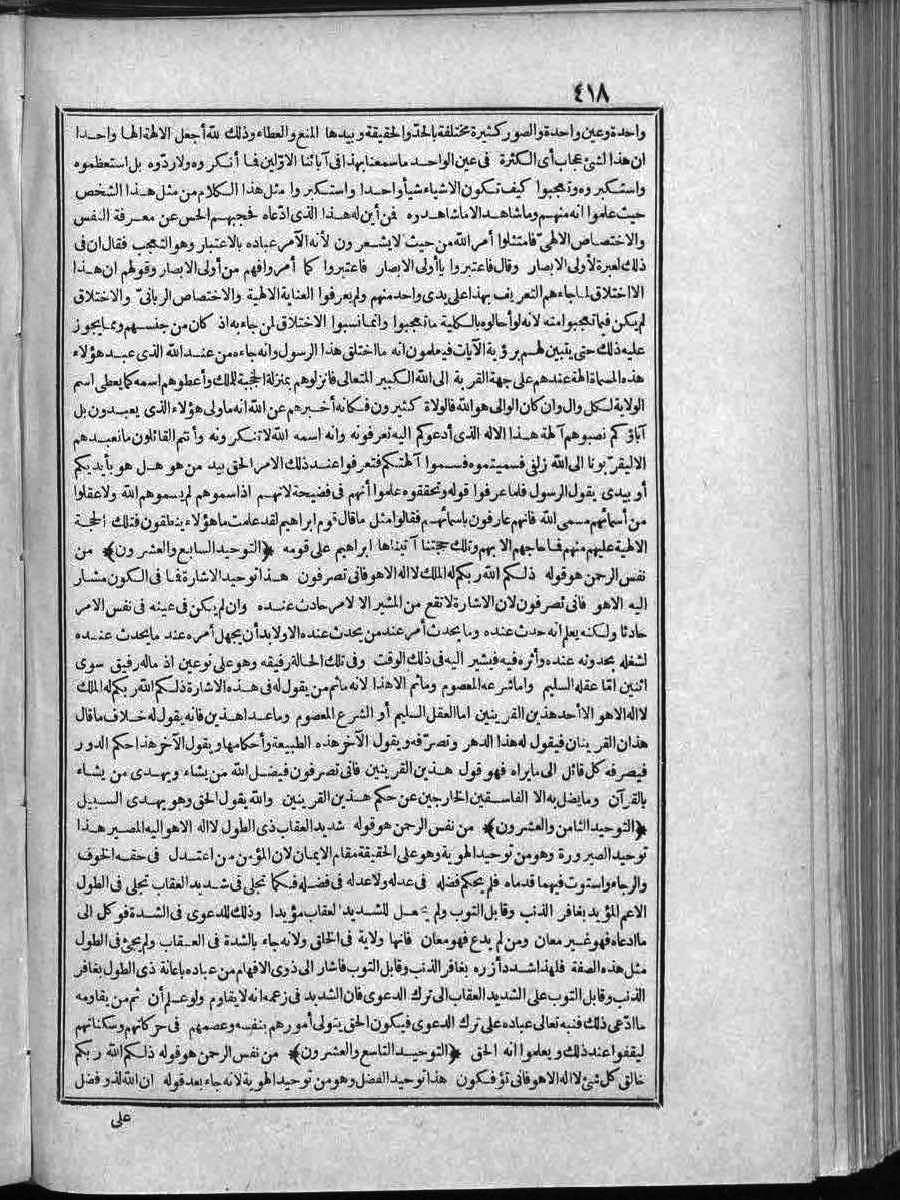 ٤١٨
واحدة وعين واحدة والصور كثيرة مختلفة بالحدّ والحقيقة وبيدها المنع والعطاء وذلك لله أجعل الالهة الها واحدا
ان هذا لشئ عجاب أى الكثرة فى عين الواحد ما سمعنا بهذا فى آبائنا الاوّلين فما أنكروه ولا ردّوه بل استعظموه
واستكبروه وتعجبوا كيف تكون الاشياء شيأ واحدا واستكبروا مثل هذا الكلام من مثل هذا الشخص
حيث علموا انه منهم وما شاهد الا ما شاهدوه فمن أين له هذا الذى ادّعاه فحجبهم الحس عن معرفة النفس
والاختصاص الالهىّ فامتثلوا أمر الله من حيث لا يشعرون لأنه الآمر عباده بالاعتبار وهو التعجب فقال ان فى
ذلك لعبرة لأولى الابصار وقال فاعتبروا يا أولى الابصار فاعتبروا كما أمروا فهم من أولى الابصار وقولهم ان هذا
الا اختلاق لما جاءهم التعريف بهذا على يدى واحد منهم ولم يعرفوا العناية الالهية والاختصاص الربانىّ والاختلاق
لم يكن فيما تعجبوا منه لانه لو أحالوه بالكلية ما تعجبوا وانما نسبوا الاختلاق لمن جاء به اذ كان من جنسهم ومما يجوز
عليه ذلك حتى يتبين لهم برؤية الآيات فيعلمون انه ما اختلق هذا الرسول وانه جاءه من عند الله الذى عبد هؤلاء
هذه المسماة الهة عندهم على جهة القربة الى الله الكبير المتعالى فانزلوهم بمنزلة الحجبة للملك وأعطوهم اسمه كما يعطى اسم
الولاية لكل وال وان كان الوالى هو الله فالولاة كثيرون فكانه أخبرهم عن الله انه ما ولى هؤلاء الذى يعبدون بل
آباؤكم نصبوهم آلهة هذا الاله الذى أدعوكم اليه تعرفونه وانه اسمه الله لا تنكرونه وأنتم القائلون ما نعبدهم
الا ليقرّبونا الى الله زلفى فسميتموه فسموا آلهتكم فتعرفوا عند ذلك الامر الحق بيد من هو هل هو بأيديكم
أو بيدى يقول الرسول فلما عرفوا قوله وتحققوه علموا أنهم فى فضيحة لانهم اذا سموهم لم يسموهم الله ولا عقلوا
من أسمائهم مسمى الله فانهم عارفون باسمائهم فقالوا مثل ما قال قوم ابراهيم لقد علمت ما هؤلاء ينطقون فتلك الحجة
الالهية عليهم منهم فما حاجهم الا بهم وتلك حجتنا آتيناها ابراهيم على قومه ﴿التوحيد السابع والعشرون﴾ من
نفس الرحمن هو قوله ذلكم الله ربكم له الملك لا اله الا هو فانى تصرفون هذا توحيد الاشارة فما فى الكون مشار
اليه الا هو فانى تصرفون لان الاشارة لا تقع من المشير الا لامر حادث عنده وان لم يكن فى عينه فى نفس الامر
حادثا ولكنه يعلم انه حدث عنده وما يحدث أمر عند من يحدث عنده الا ولا بد أن يجهل أمره عند ما يحدث عنده
لشغله بحدوثه عنده وأثره فيه فيشير اليه فى ذلك الوقت وفى تلك الحالة رفيقه وهو على نوعين اذ ماله رفيق سوى
اثنين امّا عقله السليم واما شرعه المعصوم وما ثم الا هذا لانه ما ثم من يقول له فى هذه الاشارة ذلكم الله ربكم له الملك
لا اله الا هو الا أحد هذين القرينين اما العقل السليم أو الشرع المعصوم وما عدا هذين فانه يقول له خلاف ما قال
هذان القرينان فيقول له هذا الدهر وتصرّفه ويقول الآخر هذه الطبيعة وأحكامها ويقول الآخر هذا حكم الدور
فيصرفه كل قائل الى ما يراه فهو قول هذين القرينين فانى تصرفون فيضل الله من يشاء ويهدى من يشاء
بالقرآن وما يضل به الا الفاسقين الخارجين عن حكم هذين القرينين والله يقول الحق وهو يهدى السبيل
﴿التوحيد الثامن والعشرون﴾ من نفس الرحمن هو قوله شديد العقاب ذى الطول لا اله الا هو اليه المصير هذا
توحيد الصيرورة وهو من توحيد الهوية وهو على الحقيقة مقام الايمان لان المؤمن من اعتدل فى حقه الخوف
والرجاء واستوت فيهما قدماه فلم يحكم فضله فى عدله ولا عدله فى فضله فكما تجلى فى شديد العقاب تجلى فى الطول
الاعم المؤيد بغافر الذنب وقابل التوب ولم يجعل للشديد العقاب مؤيدا وذلك للدعوى فى الشدة فوكل الى
ما ادعاه فهو غير معان ومن لم يدع فهو معان فانها ولاية فى الخلق ولانه جاء بالشدة فى العقاب ولم يجئ فى الطول
مثل هذه الصفة فلهذا شدد أزره بغافر الذنب وقابل التوب فاشار الى ذوى الافهام من عباده باعانة ذى الطول بغافر
الذنب وقابل التوب على الشديد العقاب الى ترك الدعوى فان الشديد فى زعمه انه لا يقاوم ولو علم أن ثم من يقاومه
ما ادّعى ذلك فنبه تعالى عباده على ترك الدعوى فيكون الحق يتولى أمورهم بنفسه وعصمهم فى حركاتهم وسكناتهم
ليقفوا عند ذلك ويعلموا انه الحق ﴿التوحيد التاسع والعشرون﴾ من نفس الرحمن هو قوله ذلكم الله ربكم
خالق كل شئ لا اله الا هو فانى تؤفكون هذا توحيد الفضل وهو من توحيد الهوية لانه جاء بعد قوله ان الله لذو فضل
على